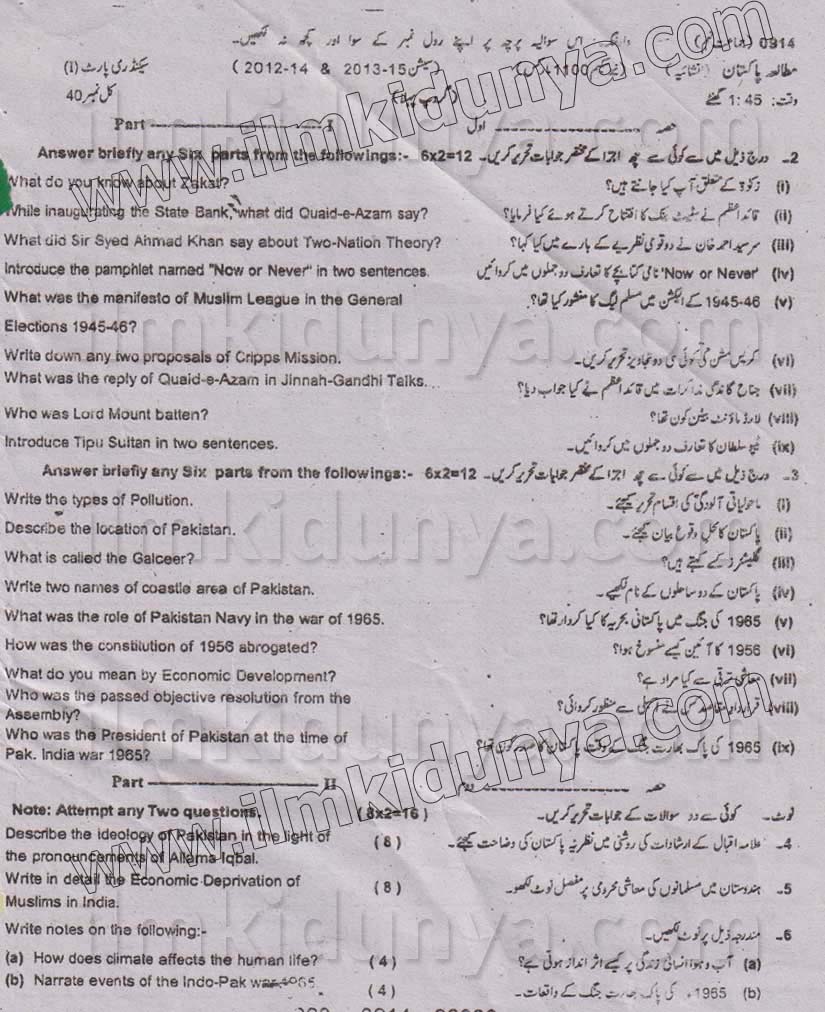 0914 وارننگ:۔ اس سوالیہ پرچہ پر اپنے رول نمبر کے سوا اور کچھ نہ لکھیں۔
مطالعہ پاکستان (انشائیہ) (سیشن 15-2013 & 14-2012) سیکنڈری پارٹ (I)
وقت: 1:45 گھنٹے (گروپ پہلا) کل نمبر 40
Part ---------------- I حصہ ---------------- اول
Answer briefly any Six parts from the followings:- 6x2=12 2۔ درج ذیل میں سے کوئی سے چھ اجزا کے مختصر جوابات تحریر کریں۔
What do you know about Zakat? (i) زکوٰة کے متعلق آپ کیا جانتے ہیں؟
While inaugurating the State Bank, what did Quaid-e-Azam say? (ii) قائداعظم نے سٹیٹ بنک کا افتتاح کرتے ہوئے کیا فرمایا؟
What did Sir Syed Ahmad Khan say about Two-Nation Theory? (iii) سرسید احمد خان نے دو قومی نظریے کے بارے میں کیا کہا؟
Introduce the pamphlet named "Now or Never" in two sentences. (iv) 'Now or Never' نامی کتابچے کا تعارف دو جملوں میں کروائیں
What was the manifesto of Muslim League in the General (v) 1945-46 کے الیکشن میں مسلم لیگ کا منشور کیا تھا؟
Elections 1945-46?
Write down any two proposals of Cripps Mission. (vi) کرپس مشن کی کوئی سی دو تجاویز تحریر کریں۔
What was the reply of Quaid-e-Azam in Jinnah-Gandhi Talks. (vii) جناح گاندھی مذاکرات میں قائداعظم نے کیا جواب دیا؟
Who was Lord Mount batten? (viii) لارڈ ماؤنٹ بیٹن کون تھا؟
Introduce Tipu Sultan in two sentences. (ix) ٹیپو سلطان کا تعارف دو جملوں میں کروائیں۔
Answer briefly any Six parts from the followings:- 6x2=12 3۔ درج ذیل میں سے کوئی سے چھ اجزا کے مختصر جوابات تحریر کریں۔
Write the types of Pollution. (i) ماحولیاتی آلودگی کی اقسام تحریر کیجئے۔
Describe the location of Pakistan. (ii) پاکستان کا محل وقوع بیان کیجئے۔
What is called the Galceer? (iii) گلیشئرز کسے کہتے ہیں؟
Write two names of coastle area of Pakistan. (iv) پاکستان کے دو ساحلوں کے نام لکھیے۔
What was the role of Pakistan Navy in the war of 1965. (v) 1965 کی جنگ میں پاکستانی بحریہ کا کیا کردار تھا؟
How was the constitution of 1956 abrogated? (vi) 1956 کا آئین کیسے منسوخ ہوا؟
What do you mean by Economic Development? (vii) معاشی ترقی سے کیا مراد ہے؟
Who was the passed objective resolution from the (viii) قرارداد مقاصد کس نے اسمبلی سے منظور کروائی؟
Assembly?
Who was the President of Pakistan at the time of (ix) 1965 کی پاک بھارت جنگ کے وقت پاکستان کا صدر کون تھا؟
Pak. India war 1965?
Part ---------------- II حصہ ---------------- دوم
Note: Attempt any Two questions. (8x2=16) نوٹ۔ کوئی سے دو سوالات کے جوابات تحریر کریں۔
Describe the ideology of Pakistan in the light of (8) 4۔ علامہ اقبال کے ارشادات کی روشنی میں نظریہ پاکستان کی وضاحت کیجئے۔
the pronouncements of Allama Iqbal.
Write in detail the Economic Deprivation of (8) 5۔ ہندوستان میں مسلمانوں کی معاشی محرومی پر مفصل نوٹ لکھو۔
Muslims in India.
Write notes on the following:- 6۔ مندرجہ ذیل پر نوٹ لکھیں۔
(a) How does climate affects the human life? (4) (a) آب و ہوا انسانی زندگی پر کیسے اثر انداز ہوتی ہے؟
(b) Narrate events of the Indo-Pak war 1965 (4) (b) 1965ء کی پاک بھارت جنگ کے واقعات۔
www.ilmkidunya.com
ilmkidunya.com
ilmkidunya.com
www.ilmkidunya.com
ilmkidunya.com